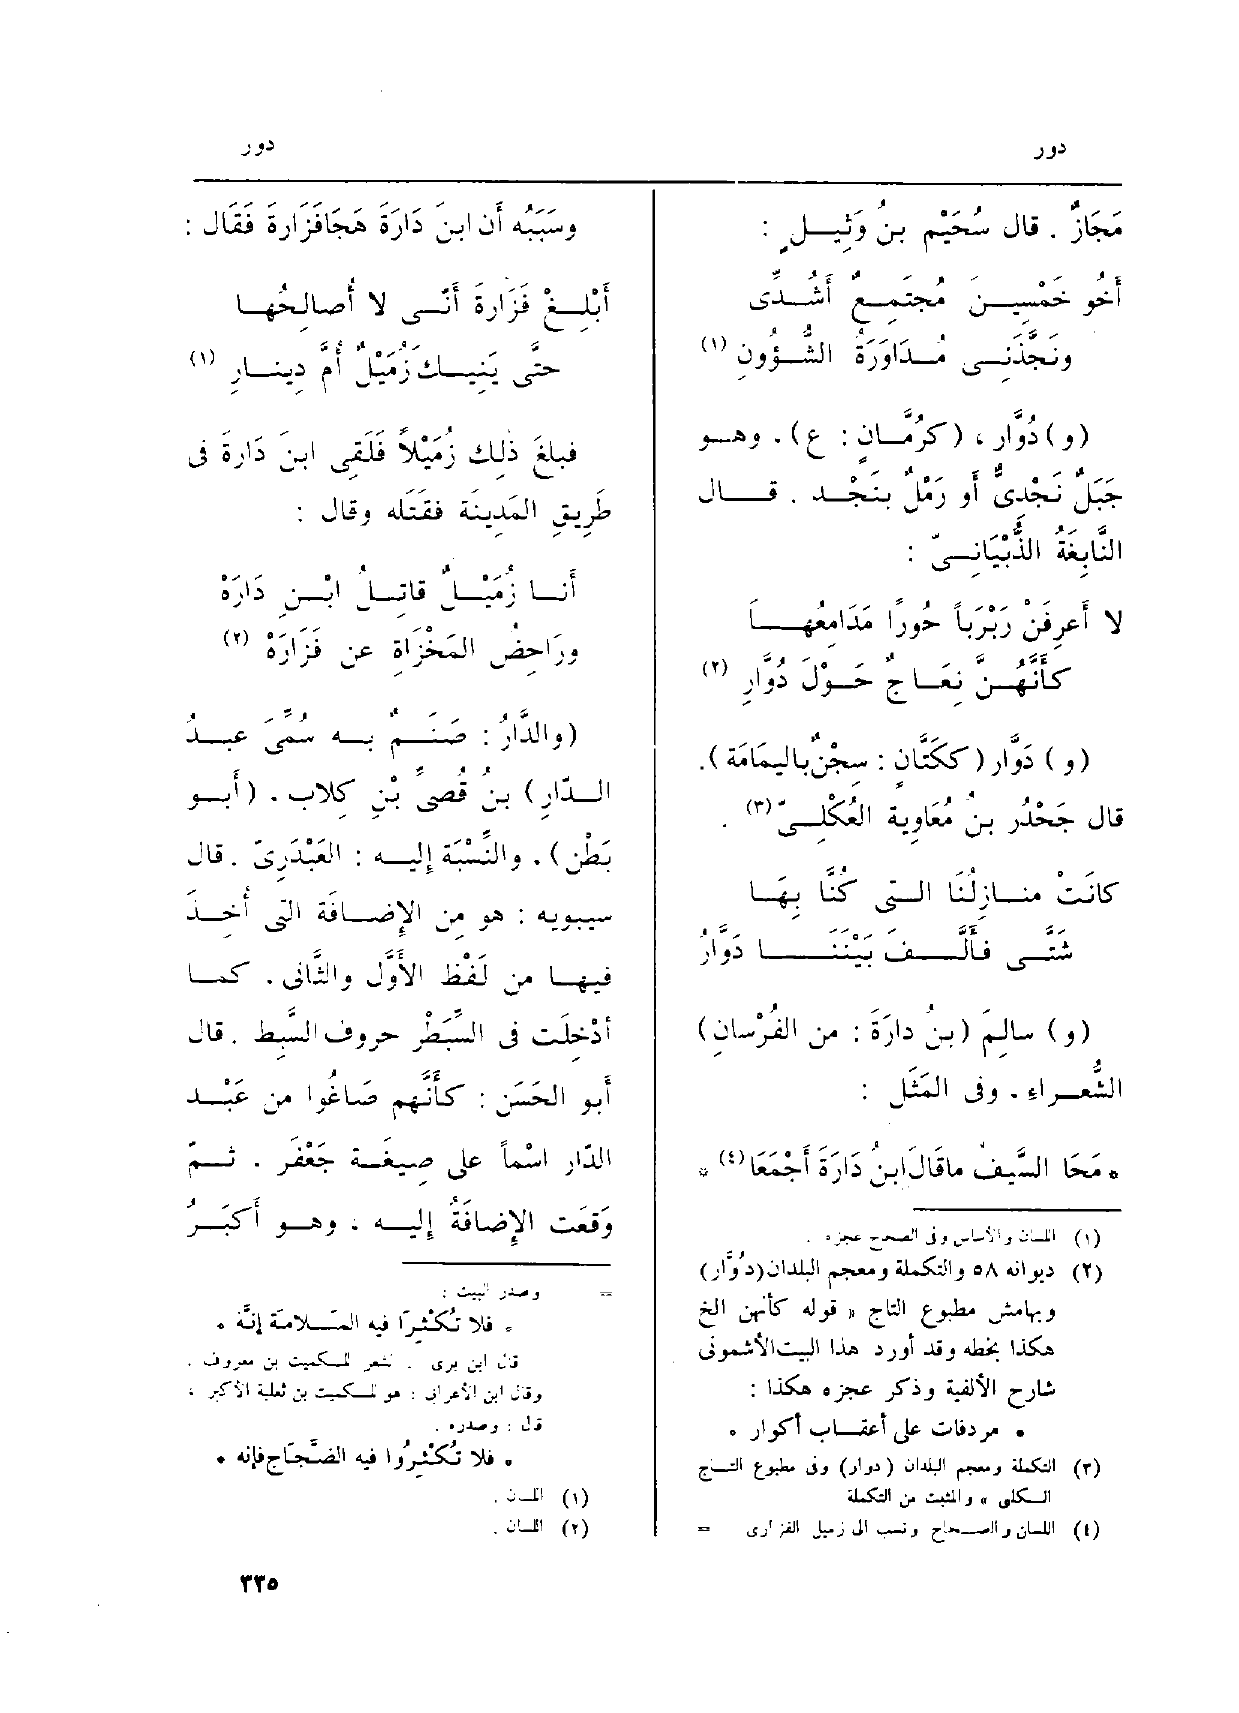 دور
دور
مَجَازٌ . قال سُحَيْم بنُ وَثِيــلٍ :
أَخُو خَمْسِيــن مُجتمــعٌ أَشُــدِّى
ونَجَّذَنِــى مُــدَاوَرَةُ الشُّــؤونِ (١)
(و) دُوَّار ، (كرُمَّــانٍ : ع) . وهــو
جَبَلٌ نَجْدِىٌّ أَو رَمْلٌ بِنَجْــد . قــال
النَّابِغَةُ الذُّبْيَانِــىّ :
لا أَعرِفَنْ رَبْرَباً حُورًا مَدَامعُهــا
كأَنَّهُــنّ نِعَــاجٌ حَــوْلَ دُوَّارِ (٢)
(و) دَوَّار (ككَتَّانٍ : سجْنٌ باليمَامَة) .
قال جَحْدَر بنُ مُعَاوِية العُكْلِــىّ (٣) .
كانَتْ منــازِلُنَا الــتى كُنَّا بِهَــا
شَتَّــى فأَلَّــفَ بَيْنَنَــا دَوَّارُ
(و) سالِم (بنُ دارَةَ : من الفُرْسانِ)
الشُّعــراء . وفى المَثَل :
* مَحَا السَّيفُ ماقالَ ابنُ دَارَةَ أَجْمَعَا (٤) *
(١) اللسان والأساس وفى الصحاح عجزه .
(٢) ديوانه ٥٨ والتكملة ومعجم البلدان (دُوَّار)
وبهامش مطبوع التاج « قوله كأنهن الخ
هكذا بخطه وقد أورد هذا البيت الأشمونى
شارح الألفية وذكر عجزه هكذا :
* مردفات على أعقــاب أكوار *
(٣) التكملة ومعجم البلدان (دوار) وفى مطبوع التــاج
الــكلى » والمثبت من التكملة
(٤) اللسان والصــحاح ونسب الى زميل الفزارى =
وسَبَبُه أَن ابنَ دَارَةَ هَجَا فَزَارةَ فَقَال :
أَبْلِــغْ فَزَارةَ أَنِّــى لا أُصَالحُهــا
حتَّى يَنِيــك زُمَيْلٌ أُمَّ دِينــارِ (١)
فبلغَ ذلك زُمَيْلاً فلَقِى ابنَ دَارةَ فى
طَرِيقِ المَدِينَة فقَتَله وقال :
أَنــا زُمَيْــلٌ قاتِــلُ ابْــنِ دَارَهْ
ورَاحِضُ المَخْزَاةِ عن فَزَارَهْ (٢)
(والدَّارُ : صَنَــمٌ بــه سُمِّىَ عبــدُ
الــدّار) بنُ قُصىِّ بْنِ كِلاب . (أَبــو
بَطْن) . والنِّسْبَة إِليــه : العَبْدَرِىّ . قال
سيبويه : هو مِن الإِضــافَة التى أُخِــذَ
فيهــا من لَفْظ الأَوَّل والثَّانى . كمــا
أُدْخِلَت فى السِّبَطْرِ حروف السَّبِط . قال
أَبو الحَسَن : كأَنَّهم صَاغُوا من عَبْــد
الدّار اسْماً على صِيغَــة جَعْفَر . ثــمّ
وَقَعَت الإِضافَةُ إِليــه ، وهــو أَكبَــرُ
= وصدر البيت :
* فلا تُكْثِرَا فيه المَــلامَةَ إِنَّهُ *
قال ابن برى . الشعر للــكميت بن معروف .
وقال ابن الأعرابى : هو للــكميت بن ثعلبة الأكبر ،
قال : وصدره .
* فلا تُكْثِرُوا فيه الضَّجَاجَ فإنه *
(١) اللسان .
(٢) اللسان .
٣٣٥